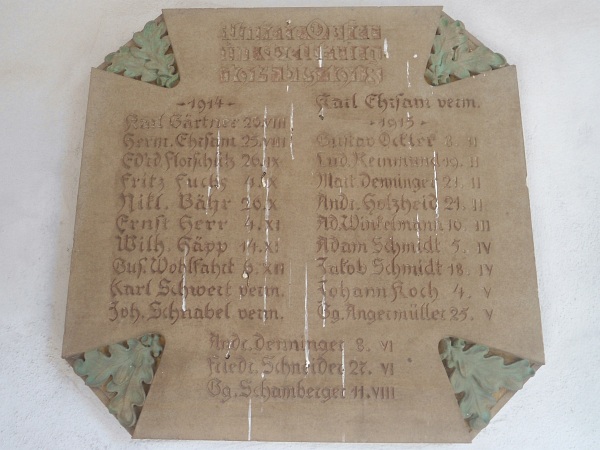 -1914-
Karl Gärtner 23.VIII
Herm. Ehrsam 25.VIII
Ed'rd Florschütz 26.IX
Fritz Fuchs
Nikl. Bähr 20.X
Ernst Herr 4.XI
Wilh. Häpp 14.XI
Gus. Wohlfahrt 6.XII
Karl Schwert verm.
Joh. Schnabel verm.
Karl Ehrsam verm.
-1915-
Gustav 8. II
Lud. Reinmund 19. II
Mart. Denninger 21. II
Andr. Holzheid 21. II
Ad. Winkelmann 10. III
Adam Schmidt 5. IV
Jakob Schmidt 18. IV
Johann Koch 4. V
Gg. Angermüller 25. V
Andr. Denninger 8. VI
Friedr. Schneider 27. VI
Gg. Schamberger 11. VIII